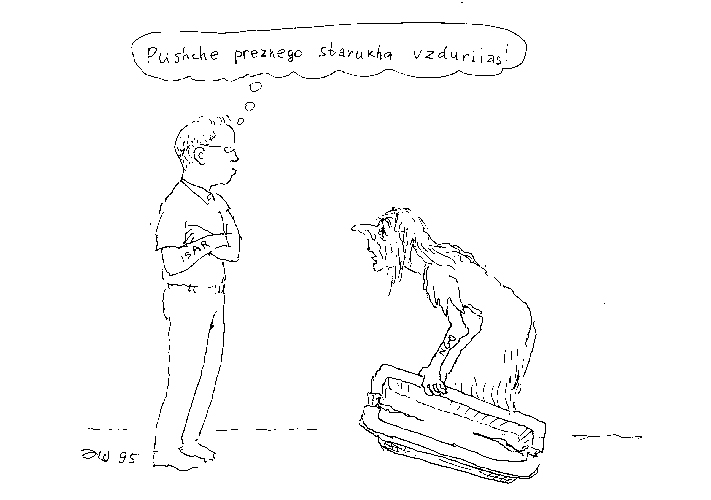 Pushche preznego starukha vzduriias!
ISAR
JW 95